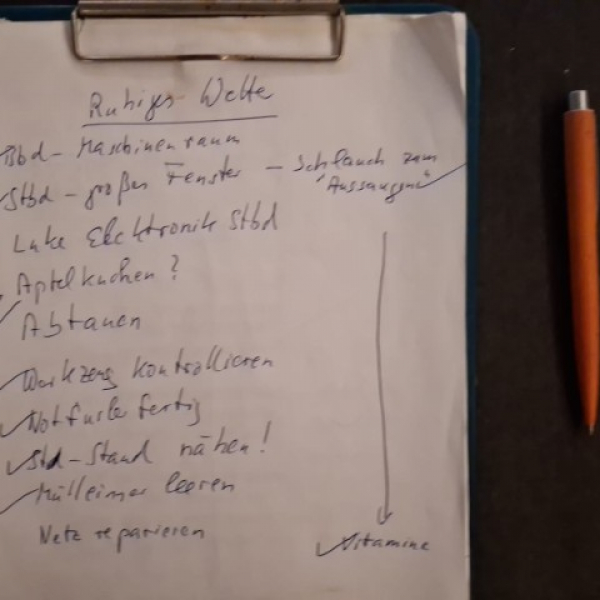 Ruhiges Wette
Bbd - Maschinenraum
Stbd - großes Fenster - Schlauch zum
"Aussaugen"
Luke Elektronik Stbd
Apfelkuchen?
Abtauen
Werkzeug kontrollieren
fertig
nähen!
Mülleimer leeren
Netz reparieren
Vitamine